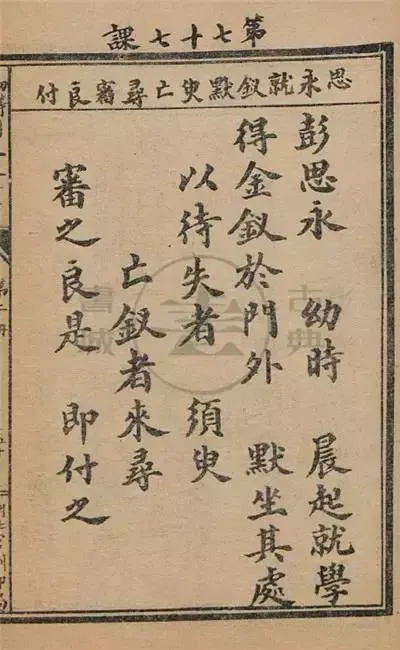 第七十七課
思永就釵默臾亡尋審良付
彭思永 幼時 晨起就學
得金釵於門外 默坐其處
以待失者 須臾
亡釵者來尋
審之良是 即付之
第二冊
古典書城